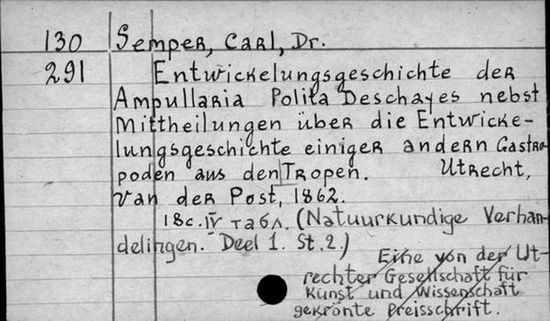 130 Semper, Carl, Dr.
291 Entwickelungsgeschichte der
Ampullaria Polita Deschayes nebst
Mittheilungen über die Entwicke-
lungsgeschichte einiger andern Gastro-
poden aus den Tropen. Utrecht,
van der Post, 1862.
18c. IV табл. (Natuurkundige Verhan-
delingen. Deel 1. St. 2.)
Eine von der Ut-
rechter Gesellschaft für
Kunst und Wissenschaft
gekrönte Preisschrift.